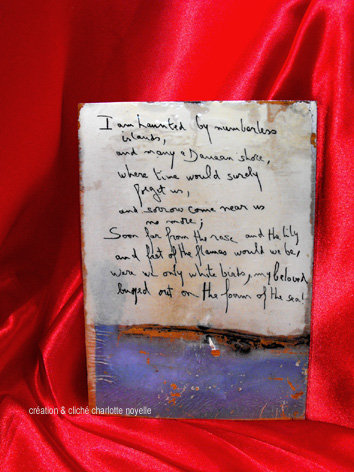 I am haunted by numberless
islands,
and many a Danaan shore,
where time would surely
forget us,
and sorrow come near us
no more;
Soon far from the rose and the lily
and fret of the flames would we be,
were we only white birds, my beloved
buoyed out on the foam of the sea!
création & cliché charlotte noyelle